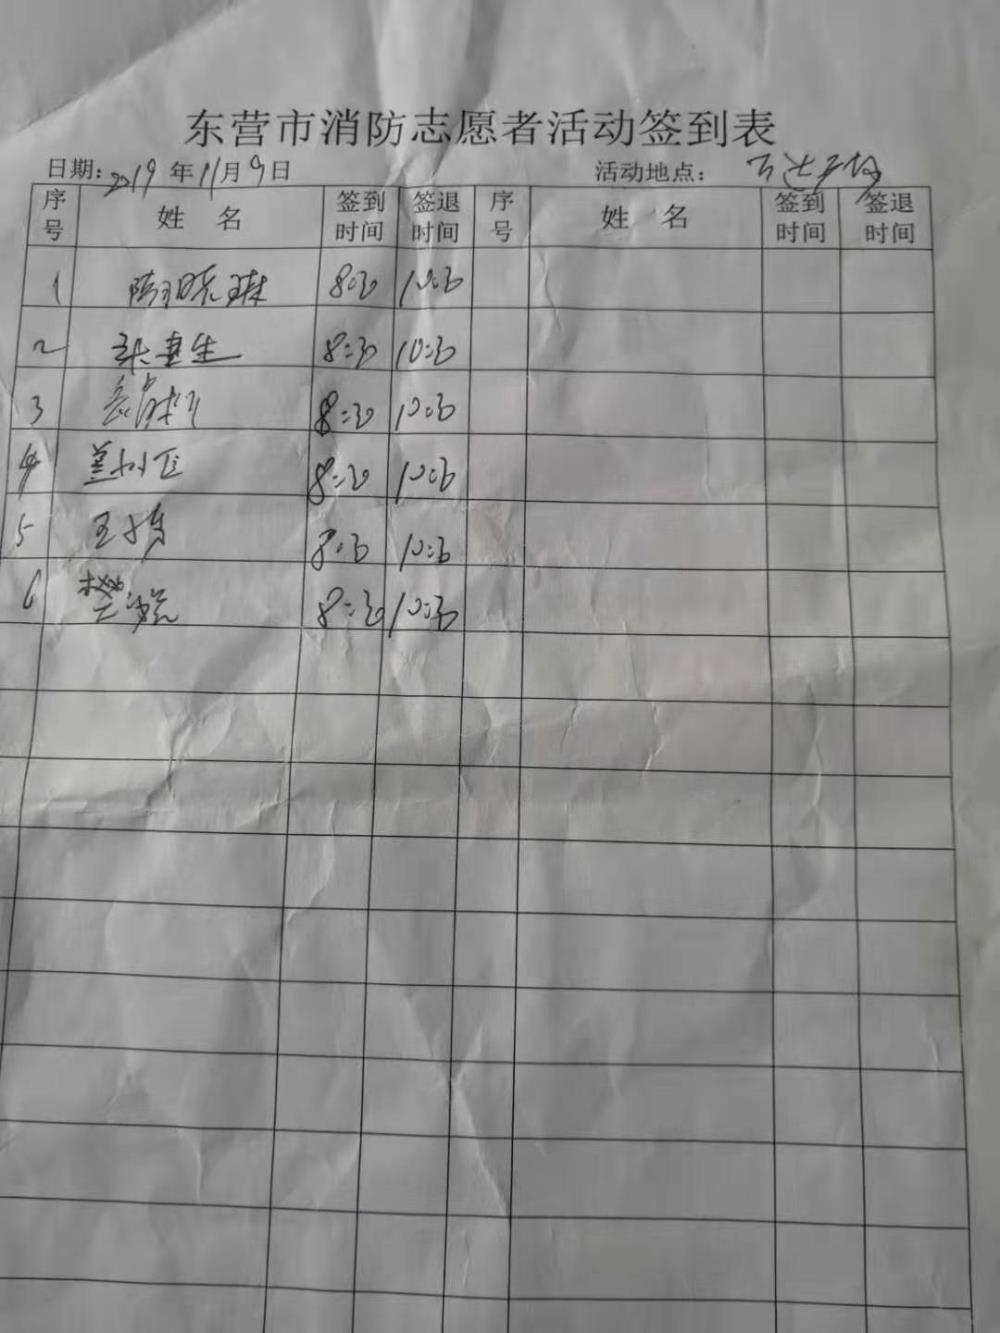 东营市消防志愿者活动签到表
日期: 2019 年 11 月 9 日 活动地点: 万达广场
序号 姓 名 签到时间 签退时间 序号 姓 名 签到时间 签退时间
1 8:30 10:30
2 8:30 10:30
3 8:30 10:30
4 8:30 10:30
5 王 8:30 10:30
6 樊 8:30 10:30